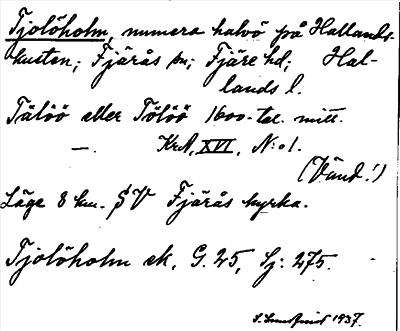 Tjolöholm, numera halvö på Hallands-
kusten; Fjärås sn; Fjäre hd; Hal-
lands l.
Tälöö eller Tölöö 1600-tal. mitt.
—. KrA, XVI, N:o 1.
(Vänd!)
Läge 8 km. SV Fjärås kyrka.
Tjolöholm ek, G. 25, Sj: 275.
1937.